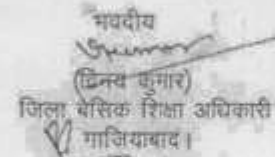 भवदीय
(विनय कुमार)
जिला बेसिक शिक्षा अधिकारी
गाजियाबाद।